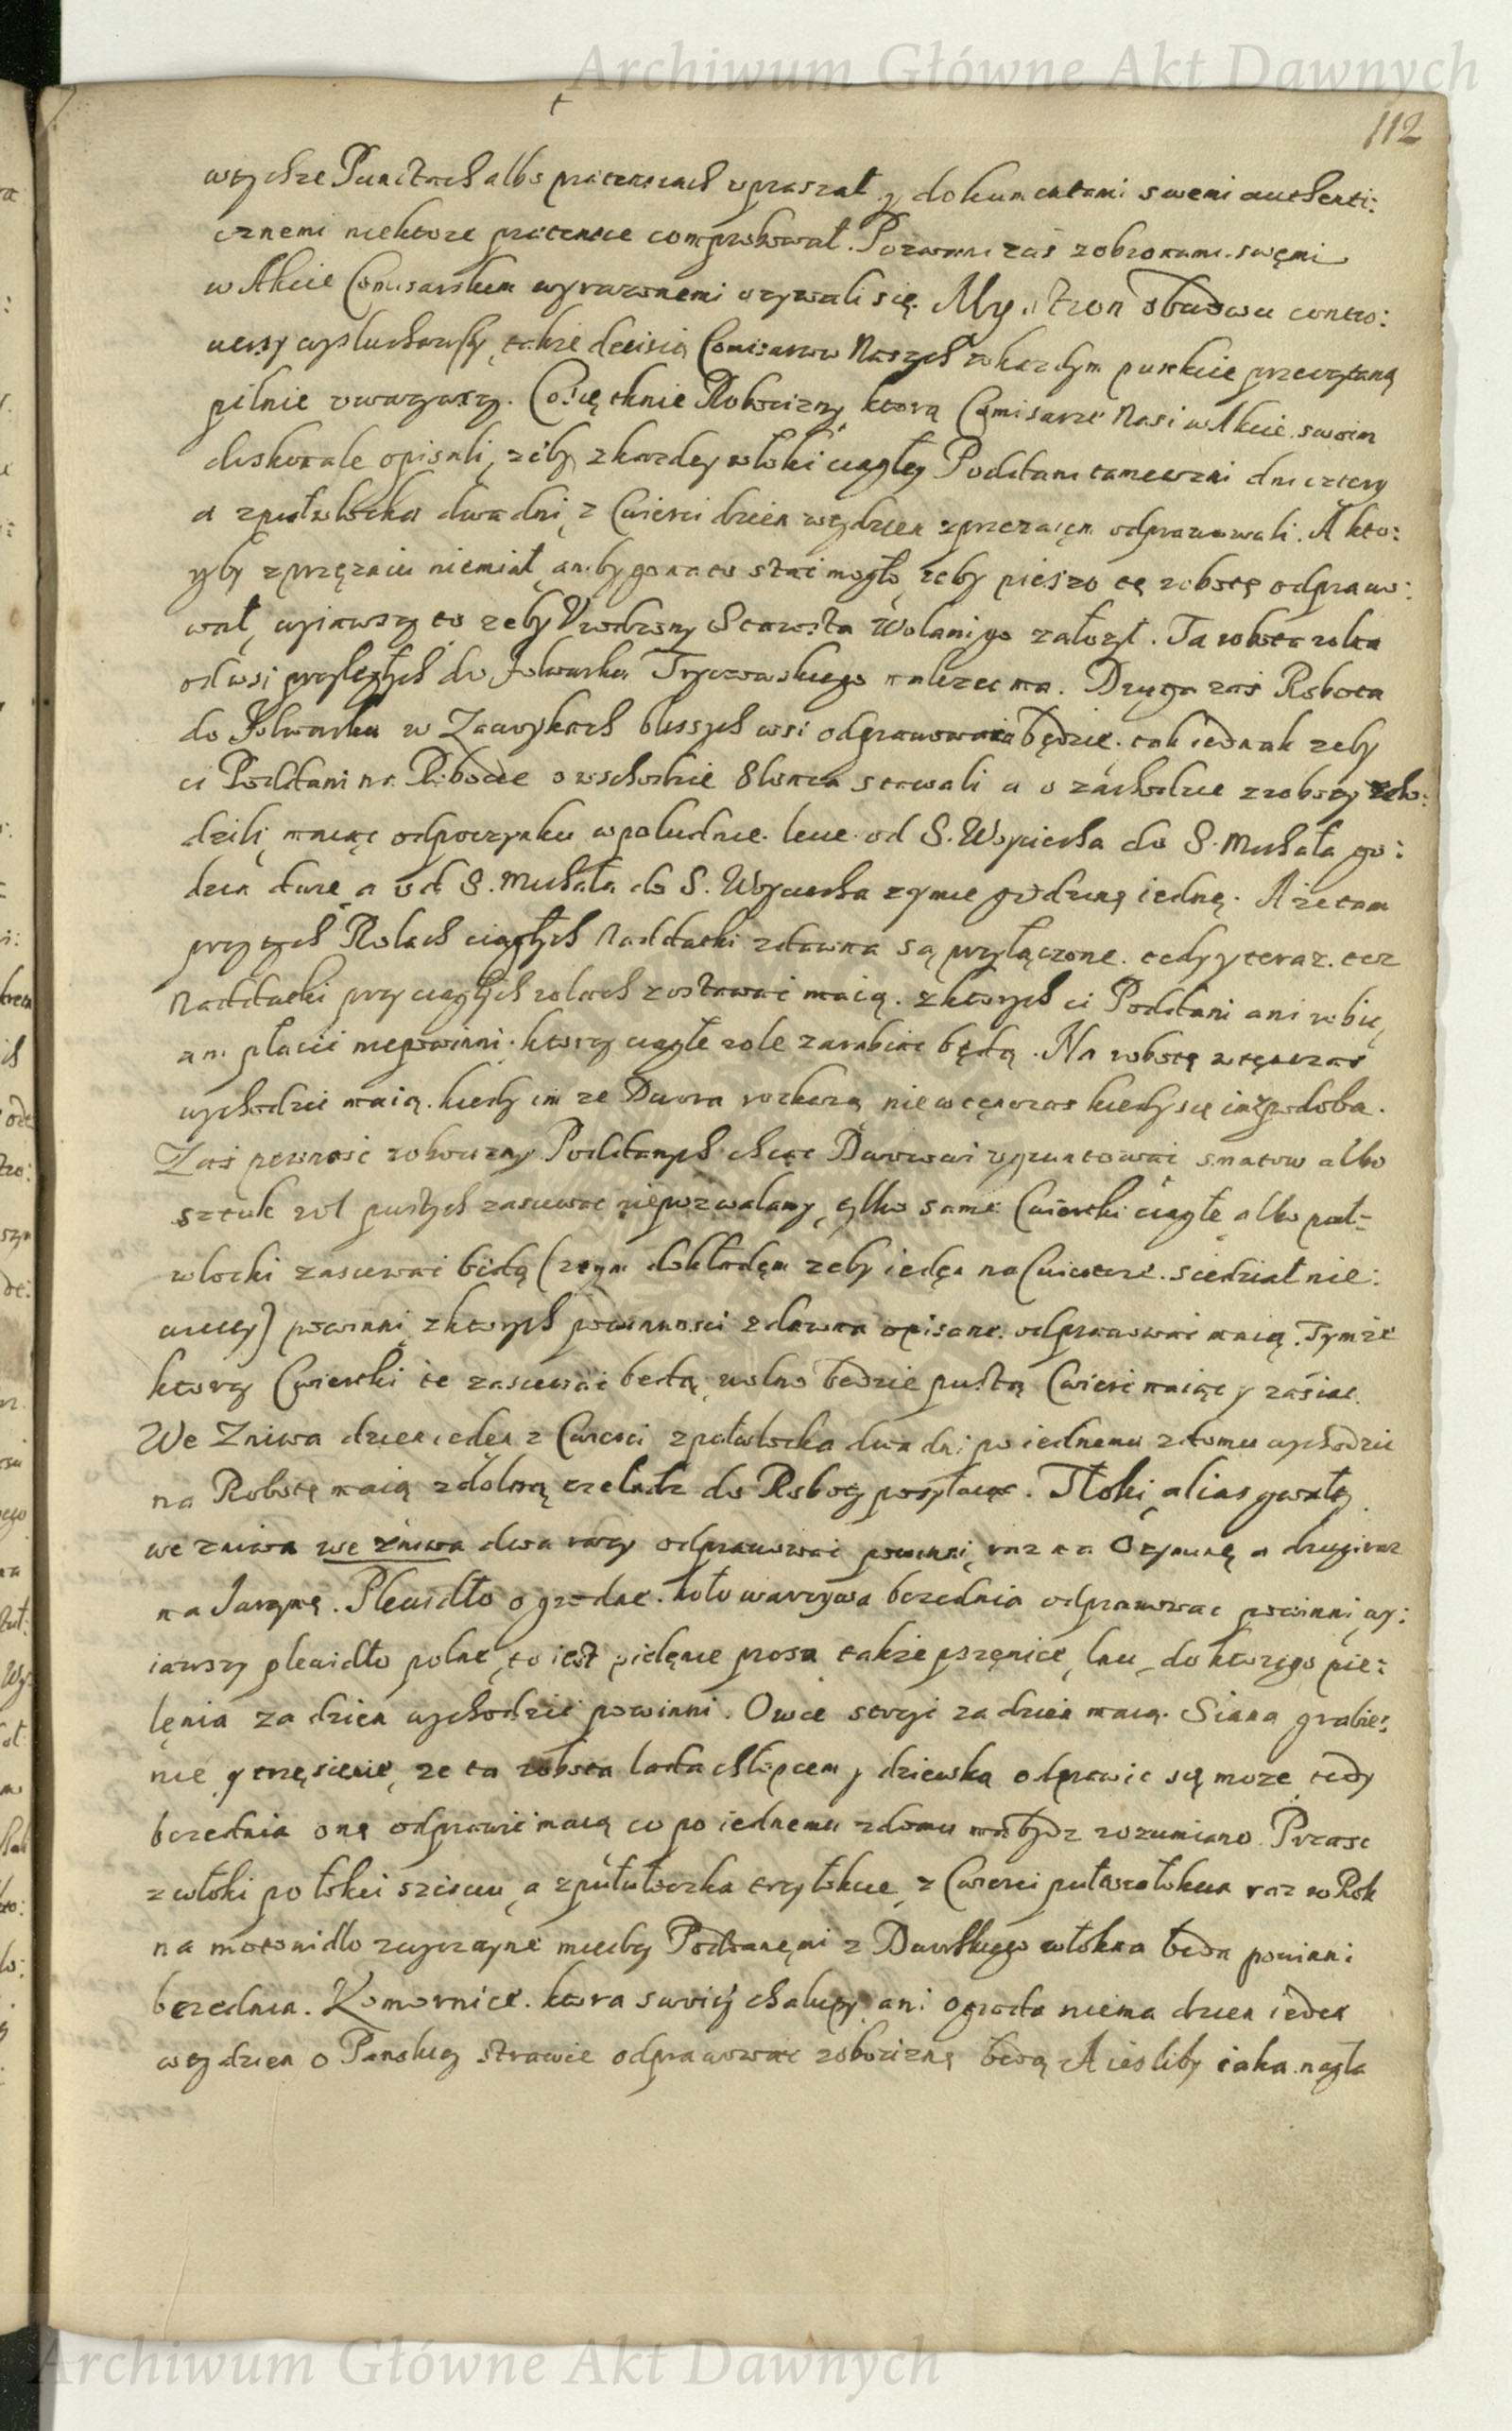 Archiwum Główne Akt Dawnych
112
wtychże Punctach albo praetensiach vpraszał y dokumentami swemi authenti:
cznemi niektore praetensie comprobował. Pozwani zaś zobronami swęmi
w Akcie Comisarskiem wyrazonemi ozywali się. My stron obudwu contro:
uersy wysłuchawszy, także decisią Comisarzow Naszych wkazdym punkcie przeczytaną
pilnie vwazywszy. Co się tknie Robocizny, ktorą Comisarze Nasi w Akcie swoim
doskonale opisali, zeby zkazdey włoki ciągłey Poddani tameczni dni cztery
a zpułwłoka dwa dni, z Cwierci dzien wtydzien zprzezaięm odprawowali. A kto:
ryby zprzęzaiu niemiał, aniby go na to stać mogło, zeby pieszo tę robotę odprawo:
wał, wyiąwszy to zeby Vrodzony Starosta Wołami go załozył. Ta robota zolta
od wsi przyległych do folwarku Tryczowskiego nalezec ma. Druga zaś Robota
do Folwarku w Zawykach blisszych wsi odprawowana będzie. tak iednak zeby
ci Poddani na Robocie o wschodzie Słonca stawali a o zachodzie zroboty scho:
dzili, maiąc odpoczynku wpołudnie lecie od S. Woyciecha do S. Michała go:
dzin dwie, a od S. Michała do S. Woyciecha zymie godzinę iednę. A ze tam
przy tych Rolach ciągłych Naddatki zdawna są przyłączone. tedy y teraz tez
Naddatki przy ciągłych rolach zostawać maią. zktorych ci Poddani ani robić,
ani płacić niepowinni. ktorzy ciągłe role zarabiac będą. Na robotę wtęnczas
wychodzić maią. kiedy im ze Dwora rozkazą nie wtęnczas kiedy się im zpodoba.
Zaś pewność robocizny Poddanych chcąc Dworowi vgruntować smatow albo
sztuk rol pustych zasiewac niepozwalamy, tylko same Cwiertki ciągłe albo puł-
włoki zasiewać będą (z tym dokładęm zeby iedęn na Cwiertce siedział nie:
więcey) powinni, zktorych powinnosci zdawna opisane odprawować maią. Tymze
ktorzy Cwiertki te zasiewać będą, wolno będzie pustą Cwierć maiąc y zasiać.
We Zniwa dzien iedęn z Cwierci zpułwłoka dwa dni po iednemu zdomu wychodzić
na Robotę maią zdolną czeladz do Roboty posyłaiąc. Tłoki, alias gwałty
we zniwa we zniwa dwa razy odprawować powinni, raz na Ozyminę a drugi raz
na Iarzynę. Plewidło ogrodne koło warzywa bezednia odprawowac powinni, wy:
iąwszy plewidło polne, to iest pielęnie prosa także pszęnice, lnu, do ktorego pie:
lęnia za dzien wychodzić powinni. Owce strzyc za dzien maią. Siana grabie:
nie y trzęsienie, ze ta robota lada chłopcem y dziewką odprawic się moze, tedy
bezednia onę odprawić maią co po iednemu zdomu ma bydz rozumiano. Prząsc
zwłoki po łokci szesciu, a zpułwłoczka trzy łokcie, z Cwierci pułtora łokcia raz w Rok
na motowidło zwyczayne miedzy Poddanęmi z Dworskiego włokna będą powinni
bezednia. Komornice. ktora swoiey chałupy, ani ogroda niema dzien ieden
wtydzien o Panskiey strawie odprawowac robociznę będą A iesliby iaka nagła
Archiwum Główne Akt Dawnych